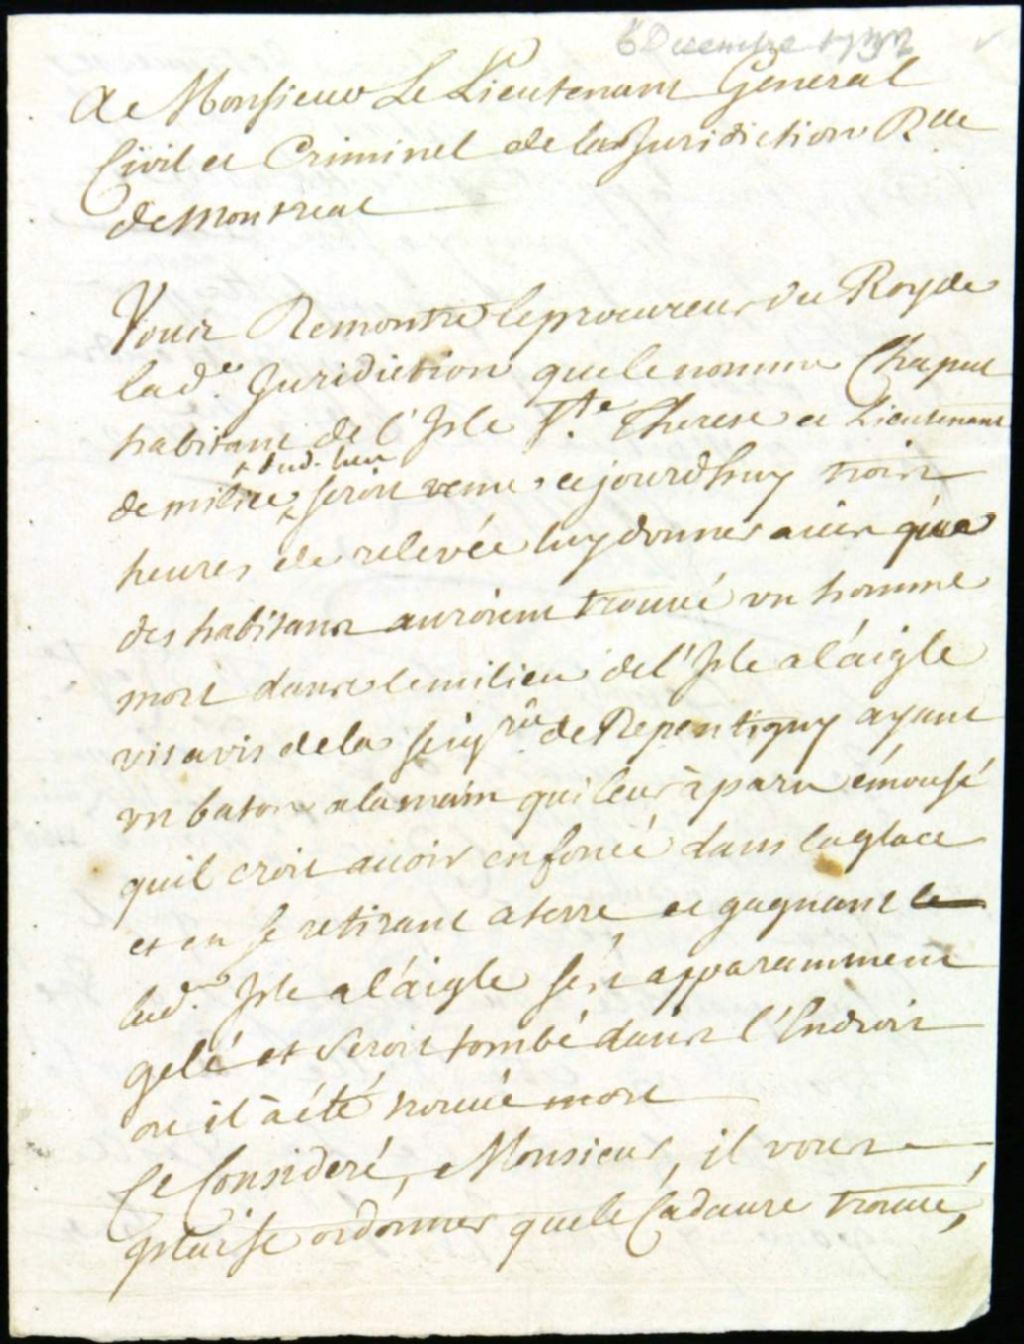 6 Decembre
A Monsieur Le Lieutenant General
Civil et Criminel de la Juridiction Rlle
de Montreal
Vous Remontre le procureur du Roy de
lad.e Juridiction que le nommé Chaput
habitant de l'Isle Ste Therese et Lieutenant
de milice seroit venu cejourd'huy trois
+ dud. lieu
heures de relevée luy donner avis que
des habitans auroient trouvé un homme
mort dans le milieu de l'Isle a l'aigle
vis avis de la seigrie de Repentigny ayant
un baton a la main qui leur à paru émousé
quil croit avoir enfoncé dans la glace
et en se retirant a terre et gagnant
lad.e Isle a l'aigle s'est apparamment
gelé et seroit tombé dans l'Endroit
ou il à été trouvé mort
Ce Consideré, Monsieur, il vous
plaise ordonner que le Cadavre trouvé,